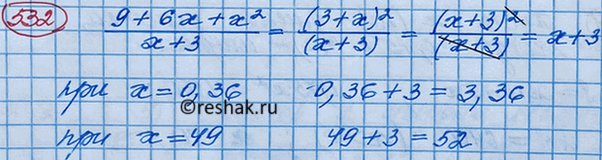 532 (9 + 6x + x²)/(x+3) = (3+x)²/(x+3) = (x+3)²/(x+3) = x+3
при x=0,36 0,36+3 = 3,36
©reshak.ru
при x=49 49+3=52